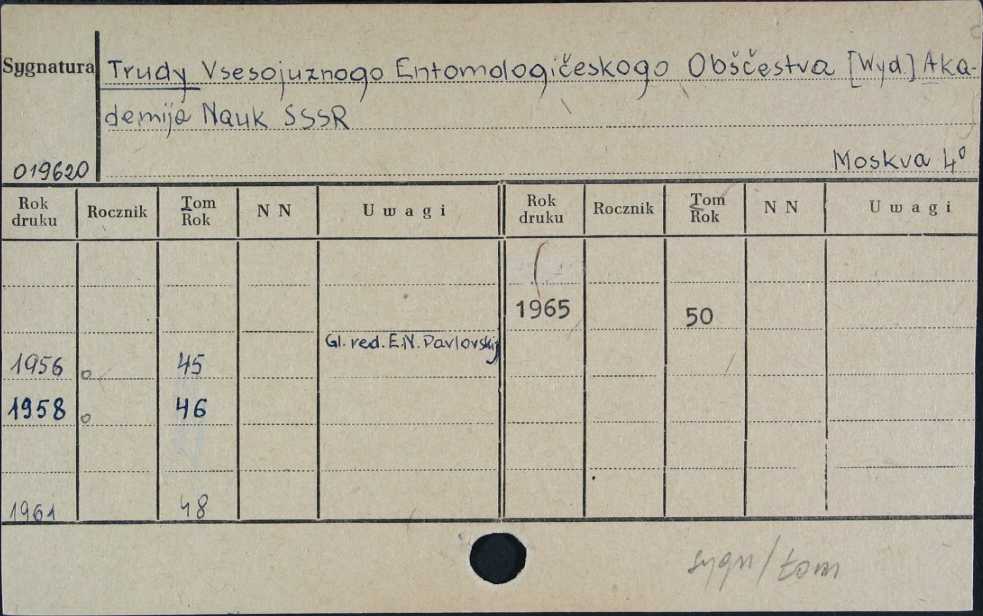 Sygnatura
Trudy Vsesojuznogo Entomologičeskogo Obščestva [Wyd.] Aka-
demija Nauk SSSR
019620
Moskva 4°
Rok druku Rocznik Tom Rok N N Uwagi Rok druku Rocznik Tom Rok N N Uwagi
1965 50
Gl. red. E.N. Pavlovskij
1956 45
1958 46
1961 48
sygn/tom